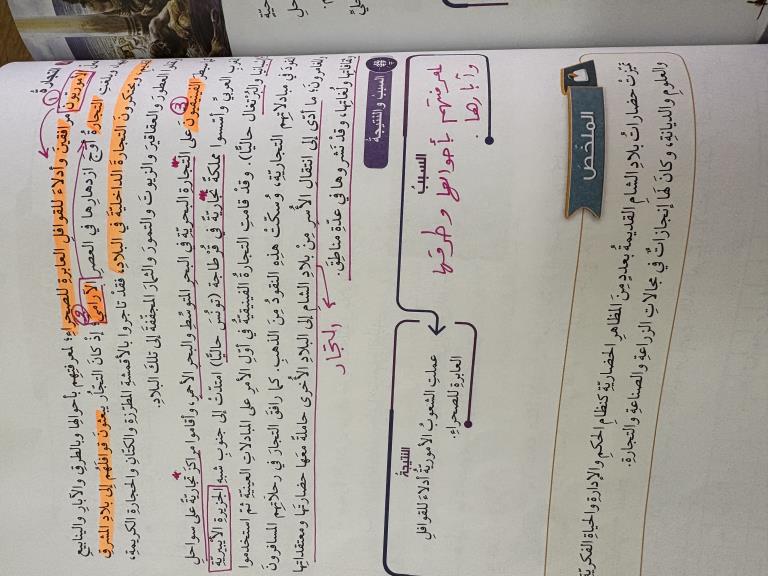 التجارة
①
الأموريون مرافقين وأدلاء للقوافل العابرة للصحراء؛ لمعرفتهم بأحوالها وبالطرق والآبار والينابيع
وبلغت التجارة أوج ازدهارها في العصر الآرامي؛ إذ كان التجار يبعثون قوافلهم إلى بلاد المشرق
②
ويحتكرون التجارة الداخلية في البلاد، فقد تاجروا بالأقمشة المطرزة والكتان والحجارة الكريمة،
العطور والعقاقير والزيوت والتمور والثمار المجففة إلى تلك البلاد.
③
الفينيقيون على التجارة البحرية في البحر المتوسط والبحر الأحمر، وأقاموا مراكز تجارية على سواحل
العربي وأسسوا مملكة تجارية في قرطاجة (تونس حاليًا) امتدت إلى جنوب شبه الجزيرة الأيبيرية
والبرتغال حاليًا). وقد قامت التجارة الفينيقية في أول الأمر على المبادلات العينية ثم استخدموا
في مبادلاتهم التجارية، وسكت هذه النقود من الذهب. كما رافق التجار في رحلاتهم المسافرون
والمغامرون؛ ما أدى إلى انتقال الأسر من بلاد الشام إلى البلاد الأخرى حاملة معها حضارتها ومعتقداتها
وثقافاتها ولغتها، وقد نشروها في عدة مناطق.
التجار
السبب والنتيجة
السبب
لمعرفتهم بأحوالها وطرقها
وآبارها
النتيجة
عملت الشعوب الأمورية أدلاء للقوافل
العابرة للصحراء.
الملخص
تميزت حضارات بلاد الشام القديمة بعدد من المظاهر الحضارية كنظام الحكم والإدارة والحياة الفكرية
والعلوم والديانة، وكان لها إنجازات في مجالات الزراعة والصناعة والتجارة.